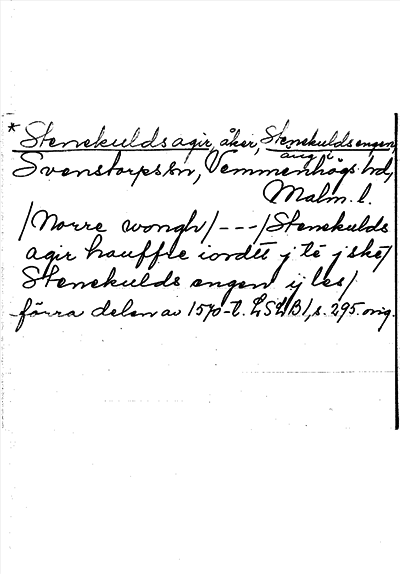 * Stenekulds agir, åker, Stenekuldsengen,
äng i
Svenstorps sn, Vemmenhögs hd,
Malm. l.
/Norre wongh/ - - - /Stenekulds
agir hauffre iordtt j te j ske/
Stenekulds engen ij les/
förra delen av 1570-t. LSLB1, s. 295. orig.